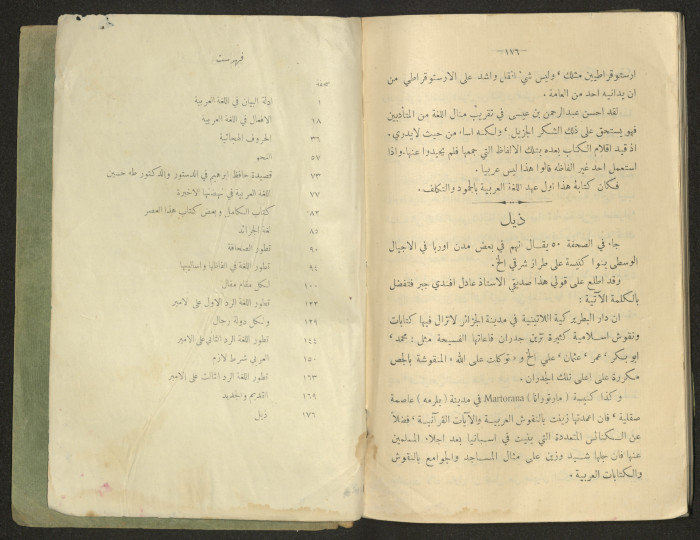 —١٧٦—
ارستوقراطيين مثلك ، وليس شيٌ اثقل واشد على الارستوقراطي من
ان يدانيه احد من العامة .
لقد احسن عبدالرحمن بن عيسى في تقريب منال اللغة من المتأدبين
فهو يستحق على ذلك الشكر الجزيل ، ولكنه اساء من حيث لايدري .
اذ قيد اقلام الكتاب بعده بتلك الالفاظ التي جمعها فلم يحيدوا عنها. واذا
استعمل احد غير الفاظه قالوا هذا ليس عربيا .
فكان كتابهُ هذا اول عهد اللغة العربية بالجمود والتكلف .
ذيل
جاء في الصفحة ٥٠ يقال انهم في بعض مدن اوربا في الاجيال
الوسطى بنوا كنيسة على طراز شرقي الخ .
وقد اطلع على قولي هذا صديقي الاستاذ عادل افندي جبر فتفضل
بالكلمة الآتية :
ان دار البطريركية اللاتينية في مدينة الجزائر لاتزال فيها كتابات
ونقوش اسلامية كثيرة تزين جدران قاعاتها الفسيحة مثل : محمد ،
ابو بكر ، عمر ، عثمان ، علي الخ و « توكلت على الله » المنقوشة بالجص
مكررة على اعلى تلك الجدران .
وكذا كنيسة ( مارتورانا Martorana ) في مدينة ( بلرمه ) عاصمة
صقلية ، فان اعمدتها زينت بالنقوش العربية والآيات القرآنية ، فضلاً
عن الكنائس المتعددة التي بنيت في اسبانيا بعد اجلاء المسلمين
عنها فان جلها شيد وزين على مثال المساجد والجوامع بالنقوش
والكتابات العربية .
فهرست
صحيفة
١ ادلة البيان في اللغة العربية
١٨ الافعال في اللغة العربية
٣٦ الحروف الهجائية
٥٧ النحو
٧٣ قصيدة حافظ ابرهيم في الدستور والدكتور طه حسين
٧٧ اللغة العربية في نهضتها الاخيرة
٨٢ كتاب الكامل وبعض كتاب هذا العصر
٨٥ لغة الجرائد
٩٠ تطور الصحافة
٩٤ تطور اللغة في الفاظها واساليبها
١٠٠ لكل مقام مقال
١٣٣ تطور اللغة الرد الاول على الامير
١٣٩ ولكل دولة رجال
١٤٤ تطور اللغة الرد الثاني على الامير
١٥٠ العربي شرط لازم
١٦٣ تطور اللغة الرد الثالث على الامير
١٦٩ القديم والجديد
١٧٦ ذيل